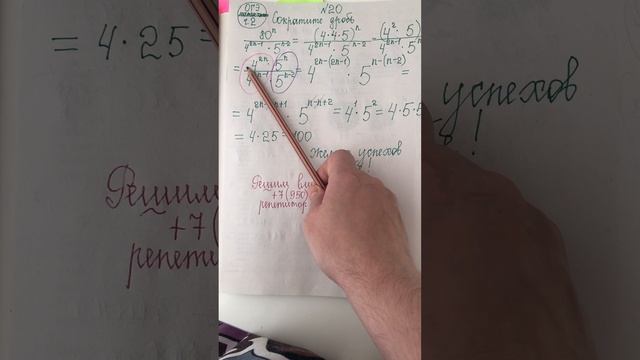 ОГЭ
ч.2
№20
Сократите дробь
80ⁿ/(4²ⁿ⁻¹·5ⁿ⁻²) = (4·4·5)ⁿ/(4²ⁿ⁻¹·5ⁿ⁻²) = (4²·5)ⁿ/(4²ⁿ⁻¹·5ⁿ
= 4²ⁿ·5ⁿ/(4²ⁿ⁻¹·5ⁿ⁻²) = 4²ⁿ⁻⁽²ⁿ⁻¹⁾ · 5ⁿ⁻⁽ⁿ⁻²⁾ =
= 4²ⁿ⁻²ⁿ⁺¹ · 5ⁿ⁻ⁿ⁺² = 4¹·5² = 4·5·5
= 4·25 = 100
успехов
!
Решим
+7(950)
репетитор
= 4·25 =
Решим
+7(
репети
успехов
!